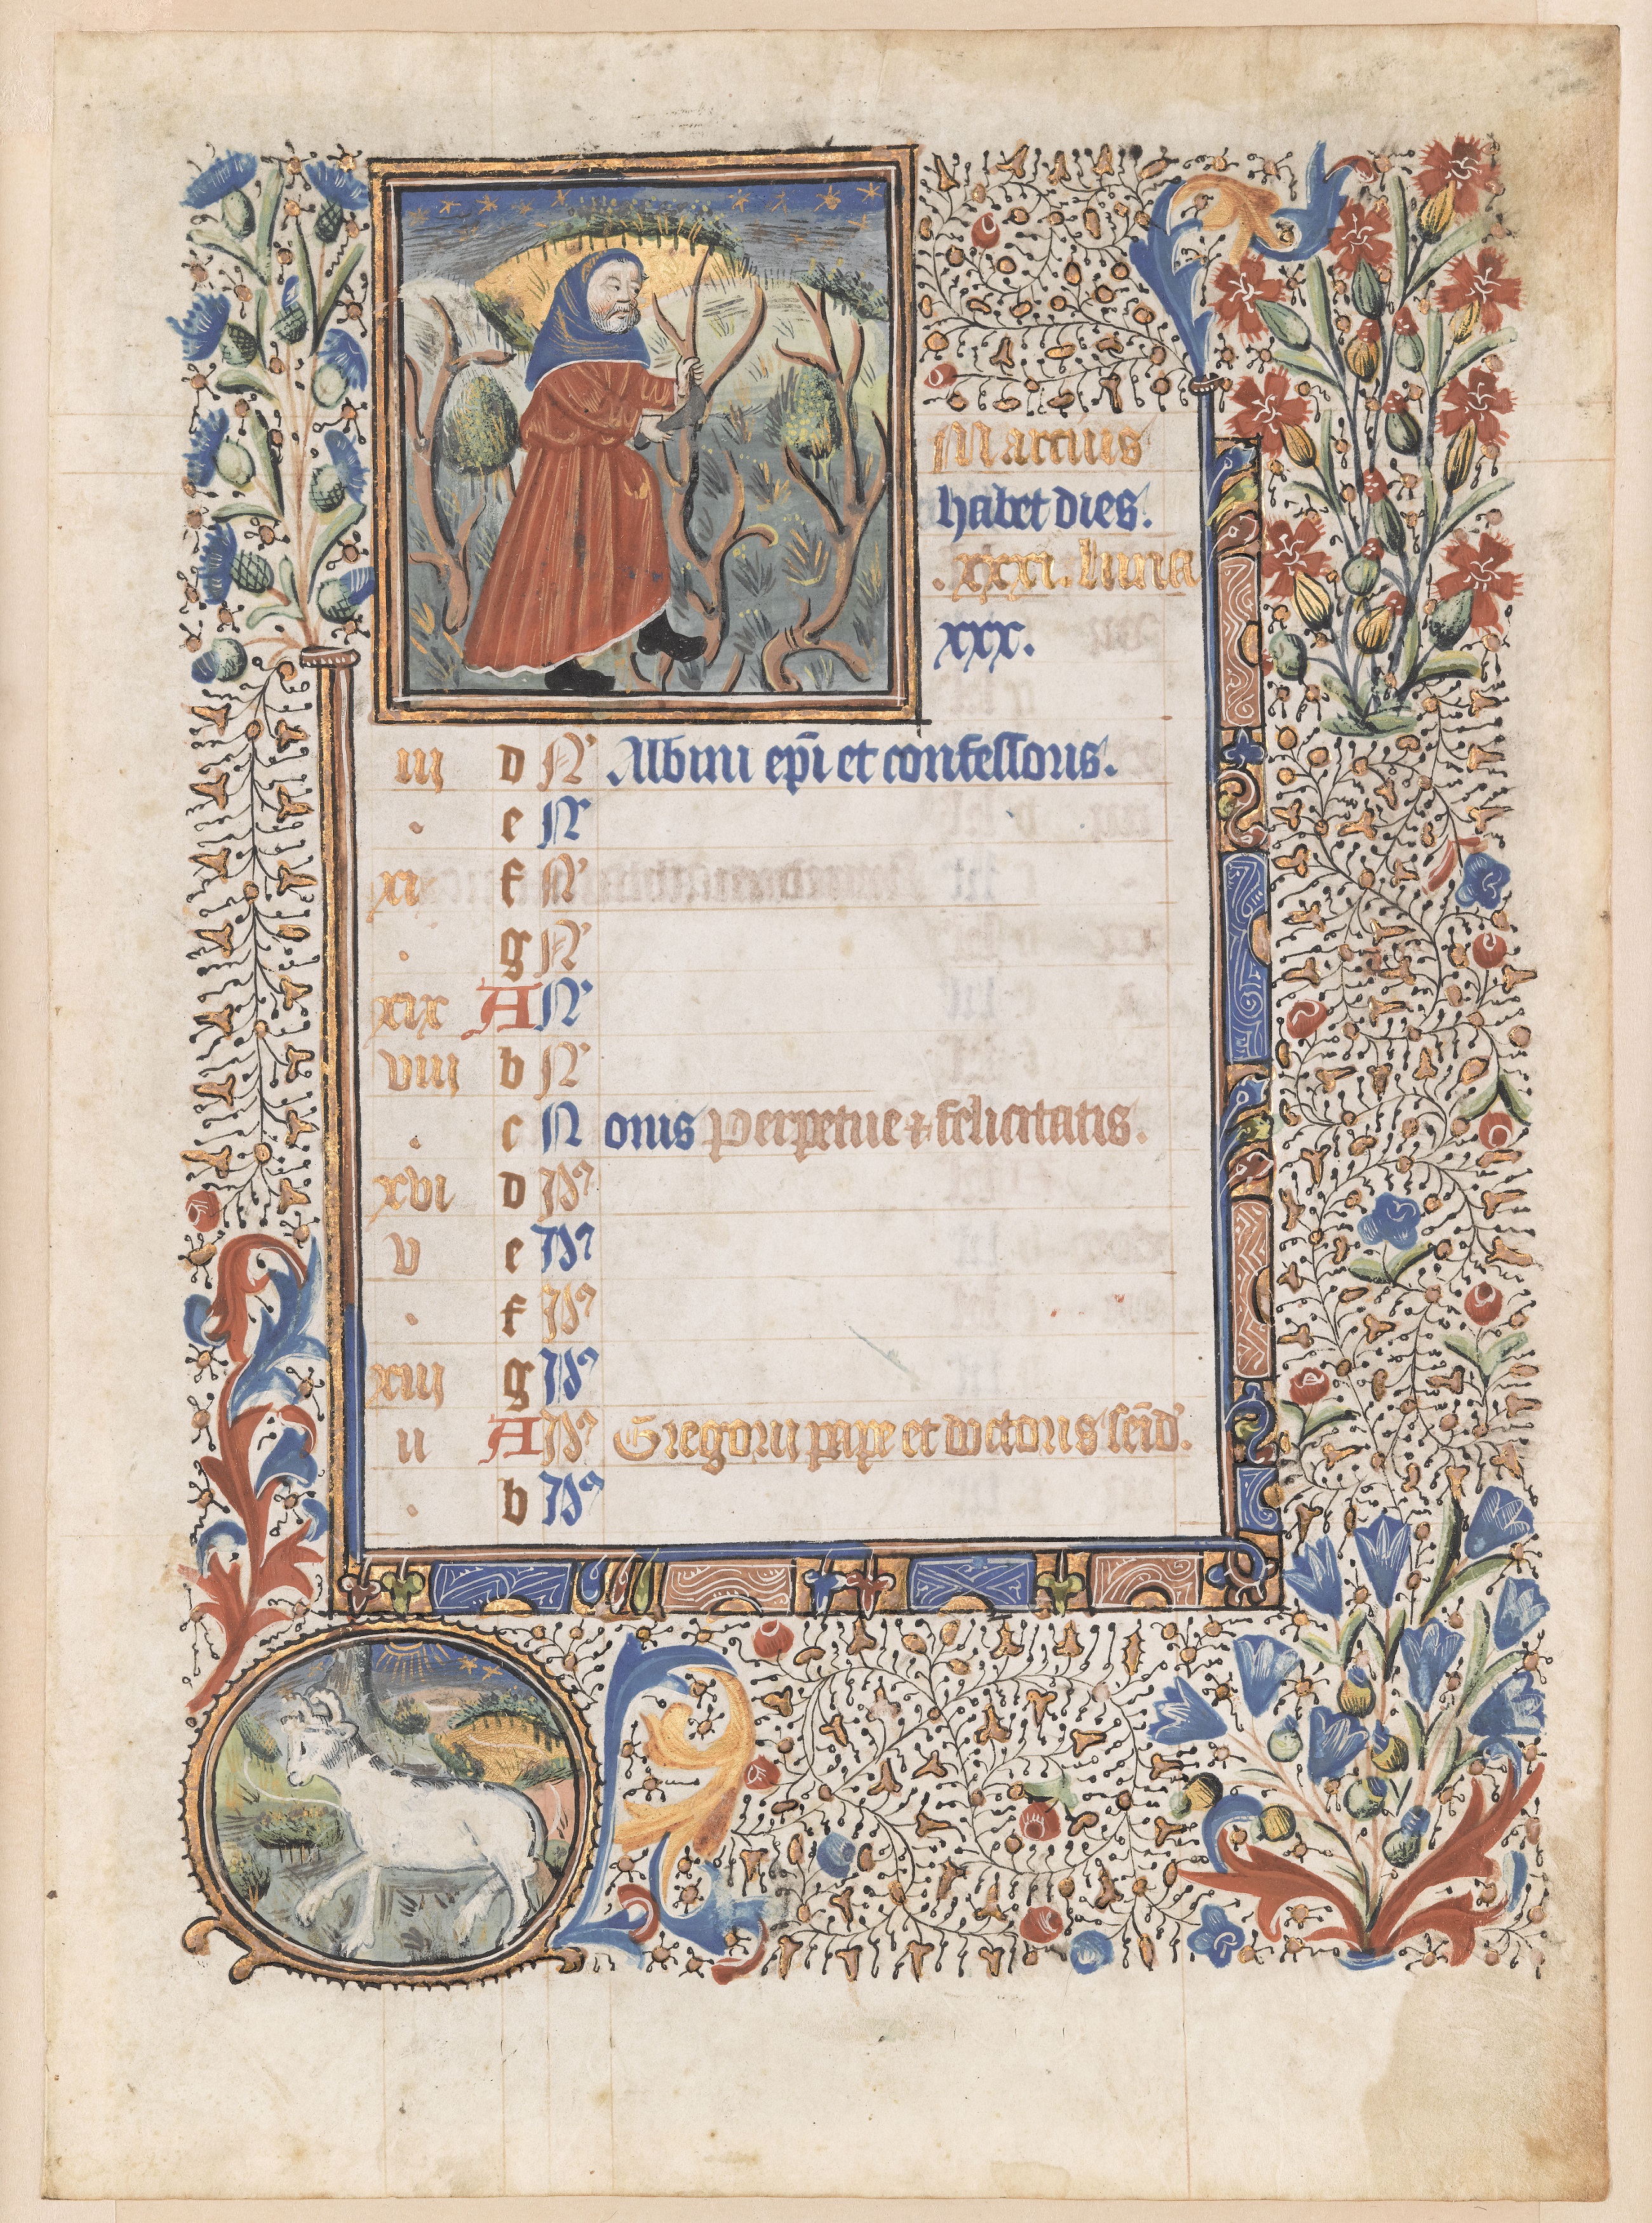 Marcius
habet dies.
.xxxi. luna
xxx.
iii d N' Albini epi et confessoris.
. e N'
xi f N'
. g N'
xix A N'
viii b N'
. c N onis Perpetue & felicitatis.
xvi d Id'
v e Id'
. f Id'
xiii g Id'
ii A Id' Gregorii pape et doctoris
. b Id'